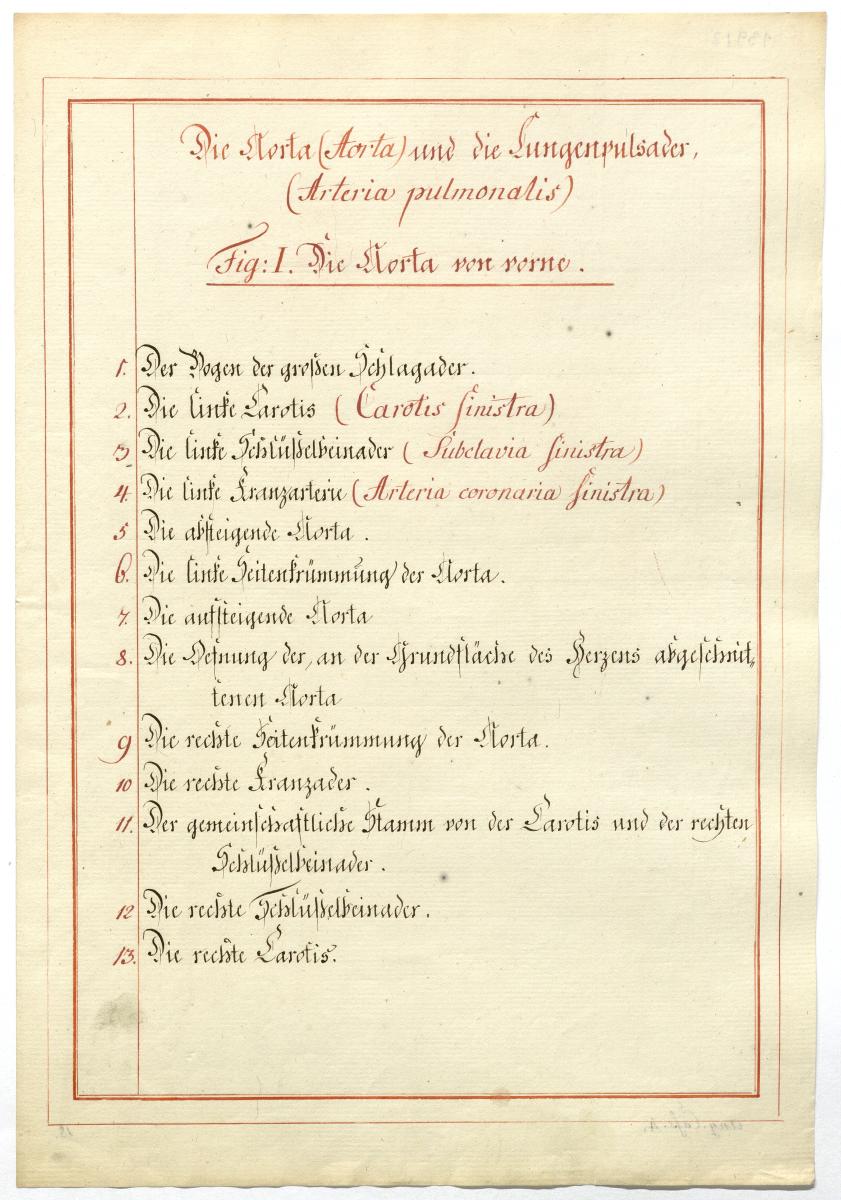 Die Aorta (Aorta) und die Lungenpulsader,
(Arteria pulmonalis)
Fig: I. Die Aorta von vorne.
1. Der Bogen der großen Schlagader.
2. Die linke Carotis (Carotis sinistra)
3. Die linke Schlüßelbeinader (Subclavia sinistra)
4. Die linke Kranzarterie (Arteria coronaria sinistra)
5 Die absteigende Aorta.
6. Die linke Seitenkrümmung der Aorta.
7. Die aufsteigende Aorta
8. Die Oefnung der, an der Grundfläche des Herzens abgeschnit„
tenen Aorta
9 Die rechte Seitenkrümmung der Aorta.
10 Die rechte Kranzader.
11. Der gemeinschaftliche Stamm von der Carotis und der rechten
Schlüßelbeinader.
12 Die rechte Schlüßelbeinader.
13. Die rechte Carotis.